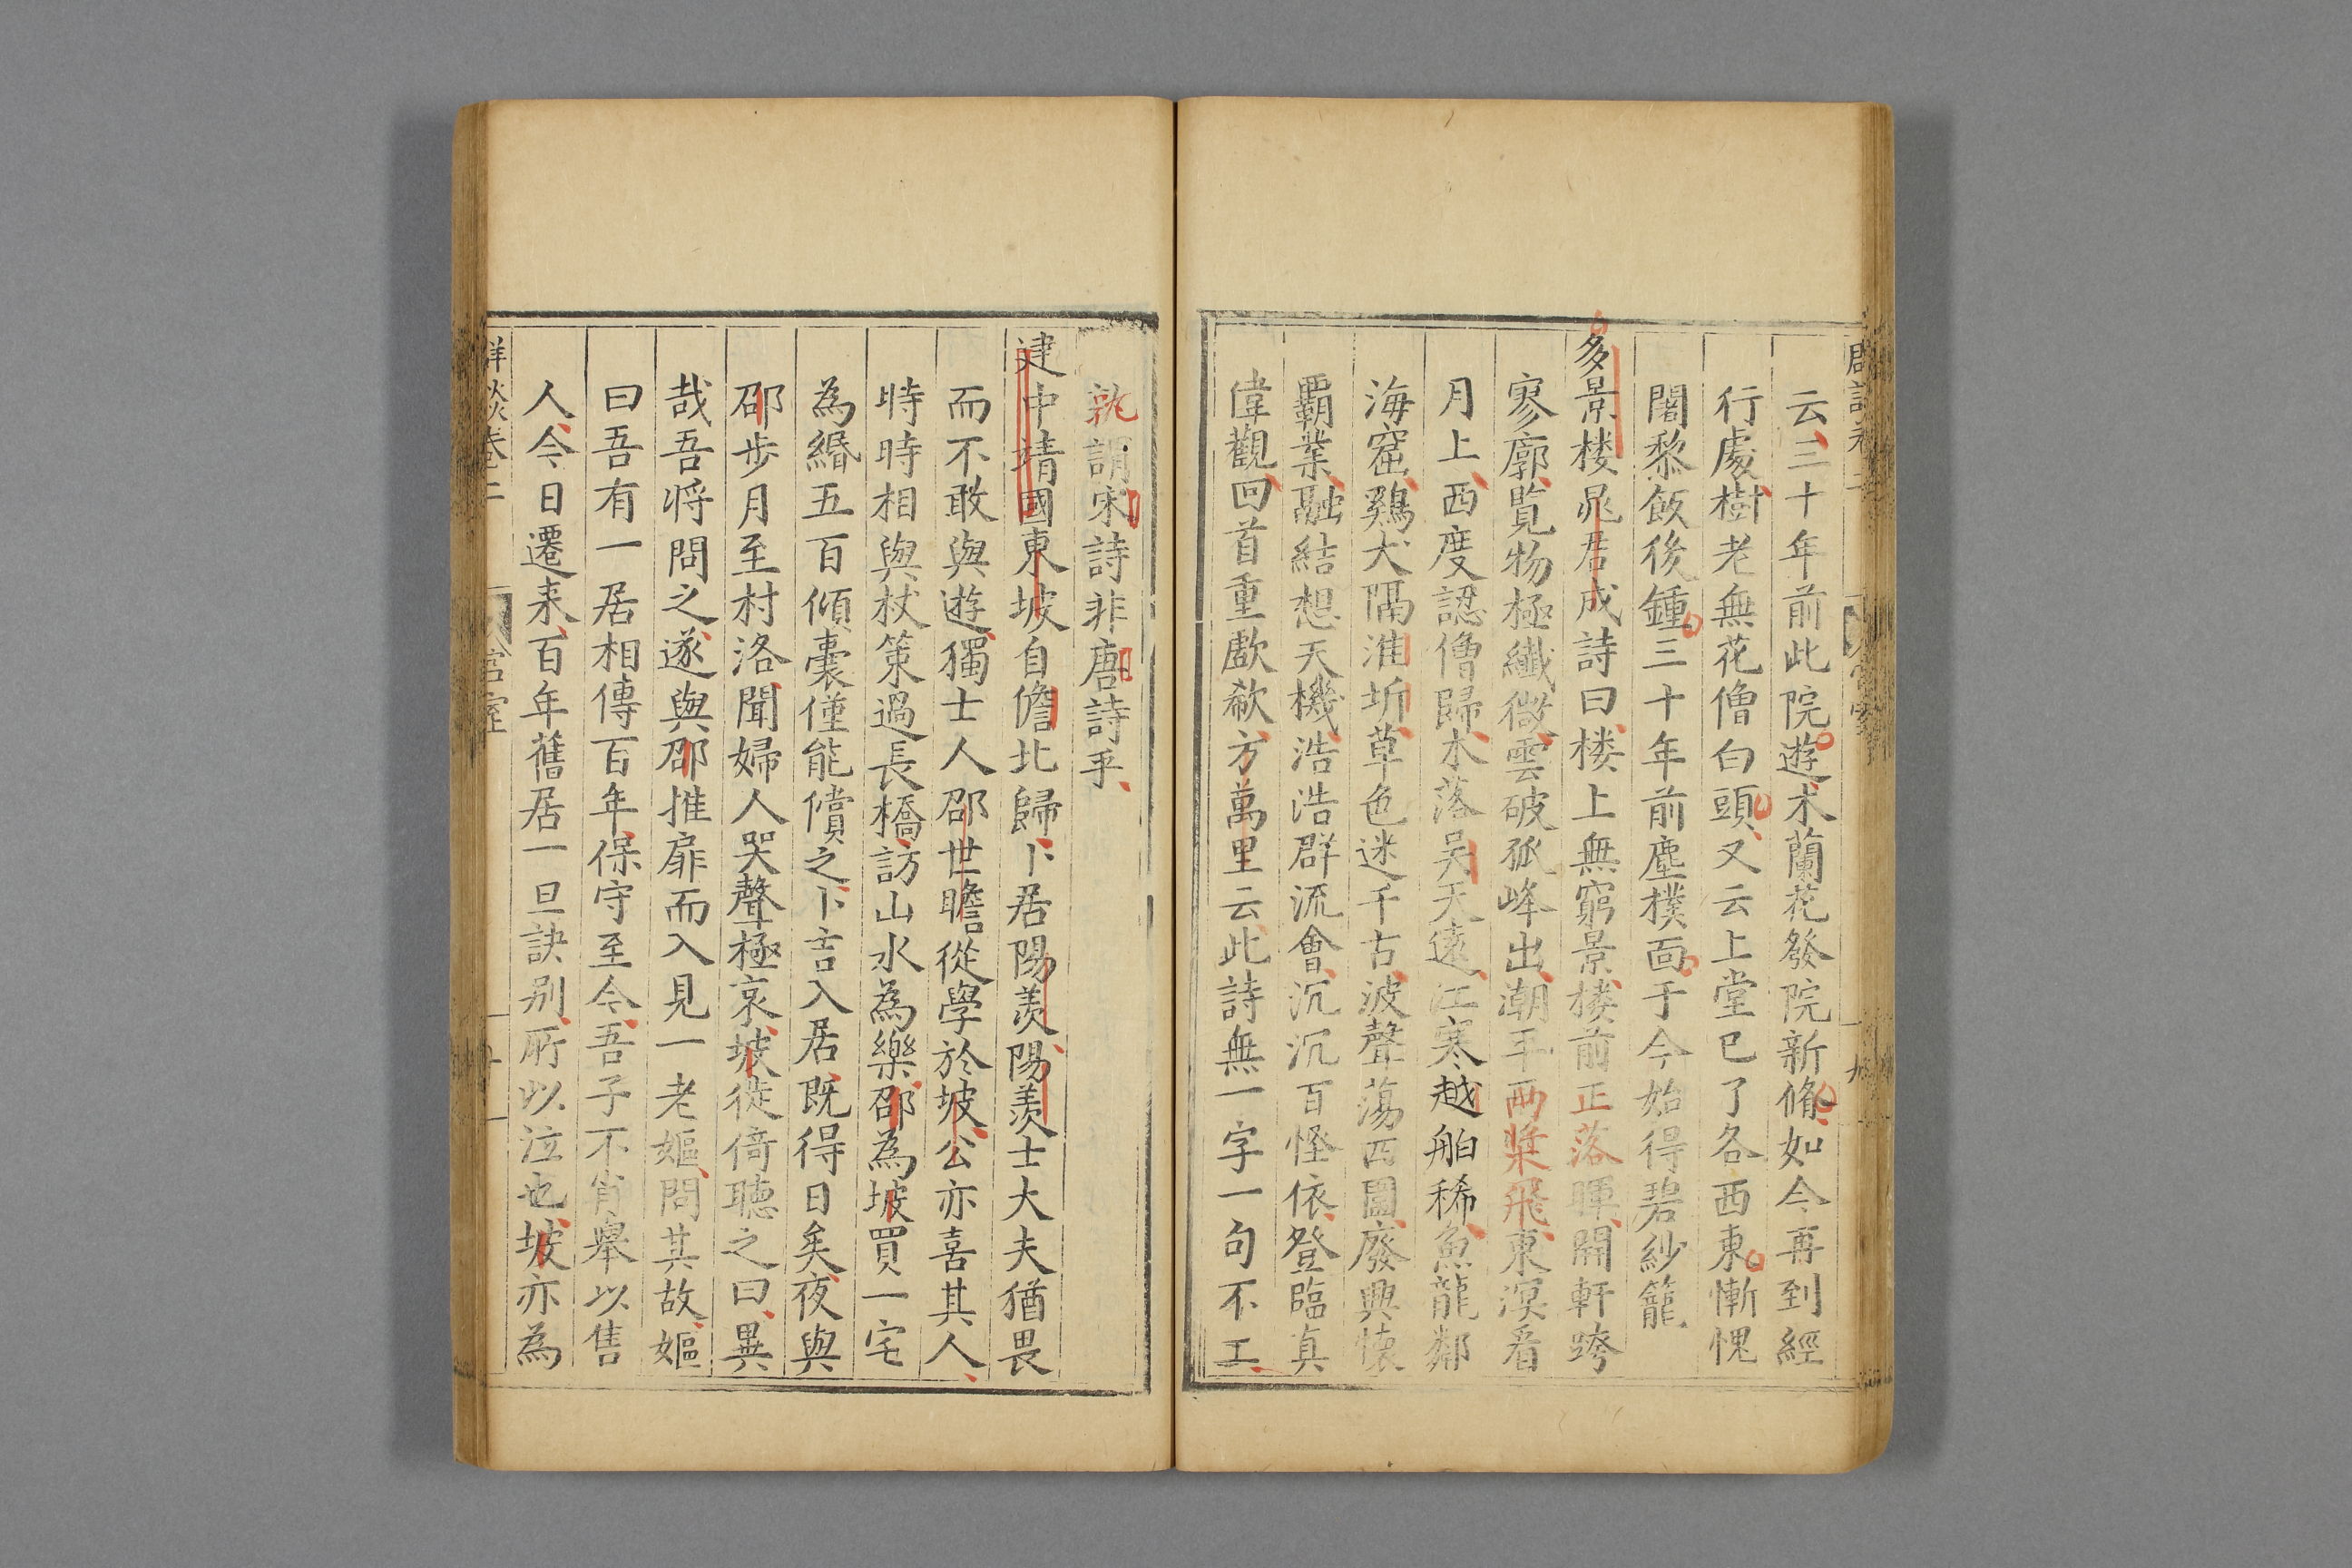 云三十年前此院遊木蘭花發院新脩如今再到經
行處樹老無花僧白頭又云上堂已了各西東慚愧
闍黎飯後鍾三十年前塵撲面于今始得碧紗籠
多景楼晁君成詩曰楼上無窮景楼前正落暉開軒跨
寥廓覧物極纖微雲破孤峰出潮平両槳飛東溟看
月上西度認僧歸木落吴天遠江寒越舶稀魚龍鄰
海窟鷄犬隔淮圻草色迷千古波聲蕩四圍廢興懐
覇業融結想天機浩浩群流會沉沉百怪依登臨真
偉觀回首重歔欷方萬里云此詩無一字一句不工
孰謂宋詩非唐詩乎
建中靖國東坡自儋北歸卜居陽羨陽羨士大夫猶畏
而不敢與遊獨士人邵世瞻從學於坡公亦喜其人
時時相與杖策過長橋訪山水為樂邵為坡買一宅
為緡五百傾囊僅能償之卜吉入居既得日矣夜與
邵步月至村洛聞婦人哭聲極哀坡徙倚聽之曰異
哉吾将問之遂與邵推扉而入見一老嫗問其故嫗
曰吾有一居相傳百年保守至今吾子不肖舉以售
人今日遷来百年舊居一旦訣别所以泣也坡亦為